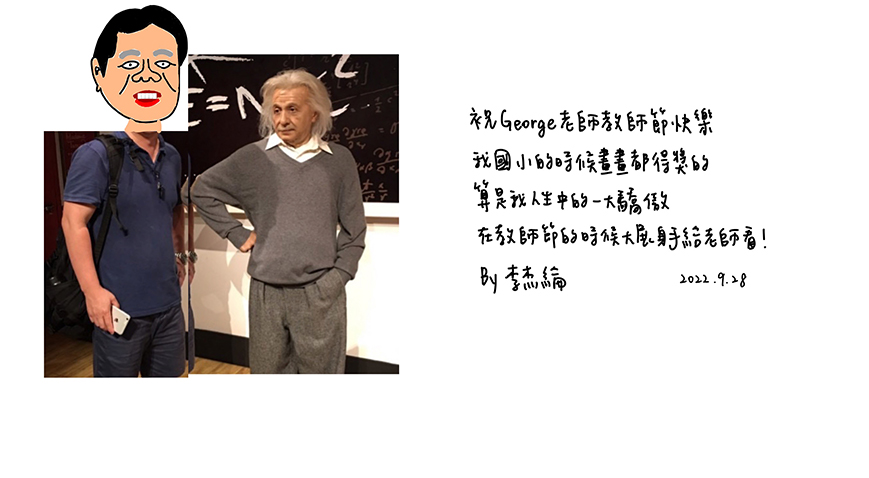 E=M c²
祝George老師教師節快樂
我國小的時候畫畫都得獎的
算是我人生中的一大驕傲
在教師節的時候大展身手給老師看!
By 李杰綸
2022.9.28